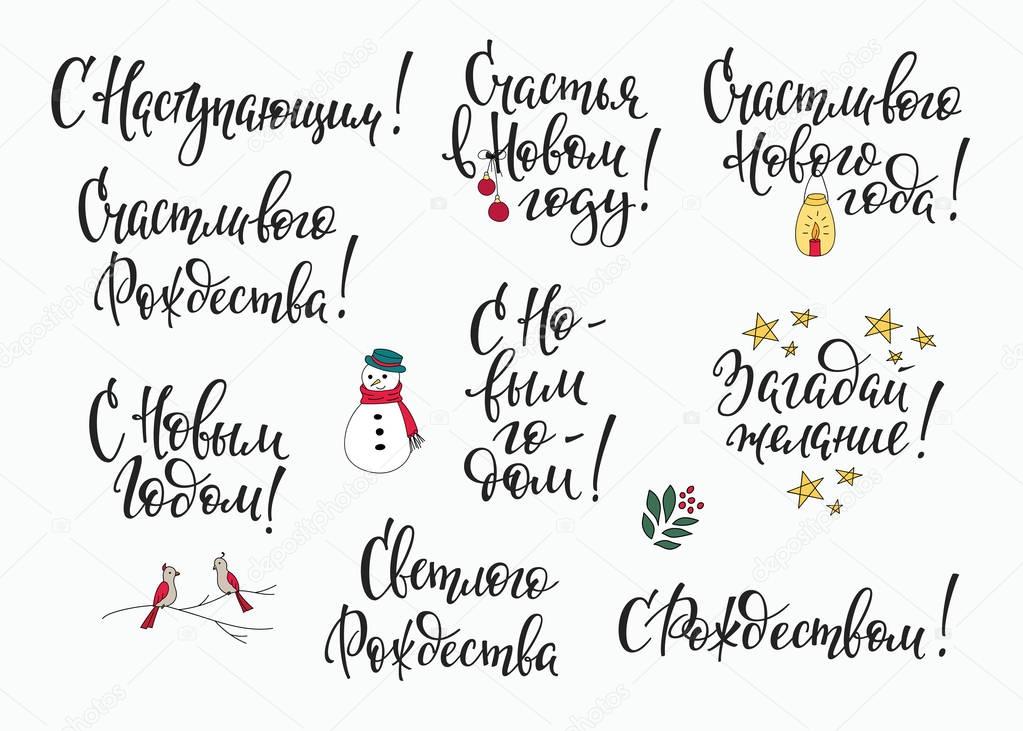 С Наступающим!
Счастья
в Новом
году!
Счастливого
Нового
года!
Счастливого
Рождества!
С Но-
вым
го-
дом!
Загадай
желание!
С Новым
Годом!
Светлого
Рождества
С Рождеством!
depositphotos